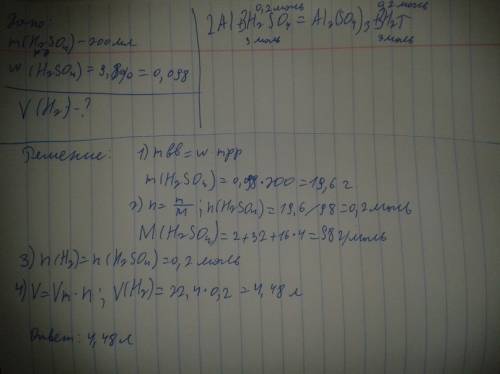 Дано:
m(H₂SO₄) - 200 мл
рр
w (H₂SO₄) = 9,8% = 0,098
V(H₂) - ?
0,2 моль 0,2 моль
2Al 3H₂SO₄ = Al₂(SO₄)₃ 3H₂↑
3 моль 3 моль
Решение: 1) m вв = w mрр
m(H₂SO₄) = 0,98 · 200 = 19,6 г
2) n = m/M ; n(H₂SO₄) = 19,6/98 = 0,2 моль
M(H₂SO₄) = 2+32+16·4 = 98 г/моль
3) n(H₂) = n(H₂SO₄) = 0,2 моль
4) V = Vm · n ; V(H₂) = 22,4 · 0,2 = 4,48 л
Ответ: 4,48 л